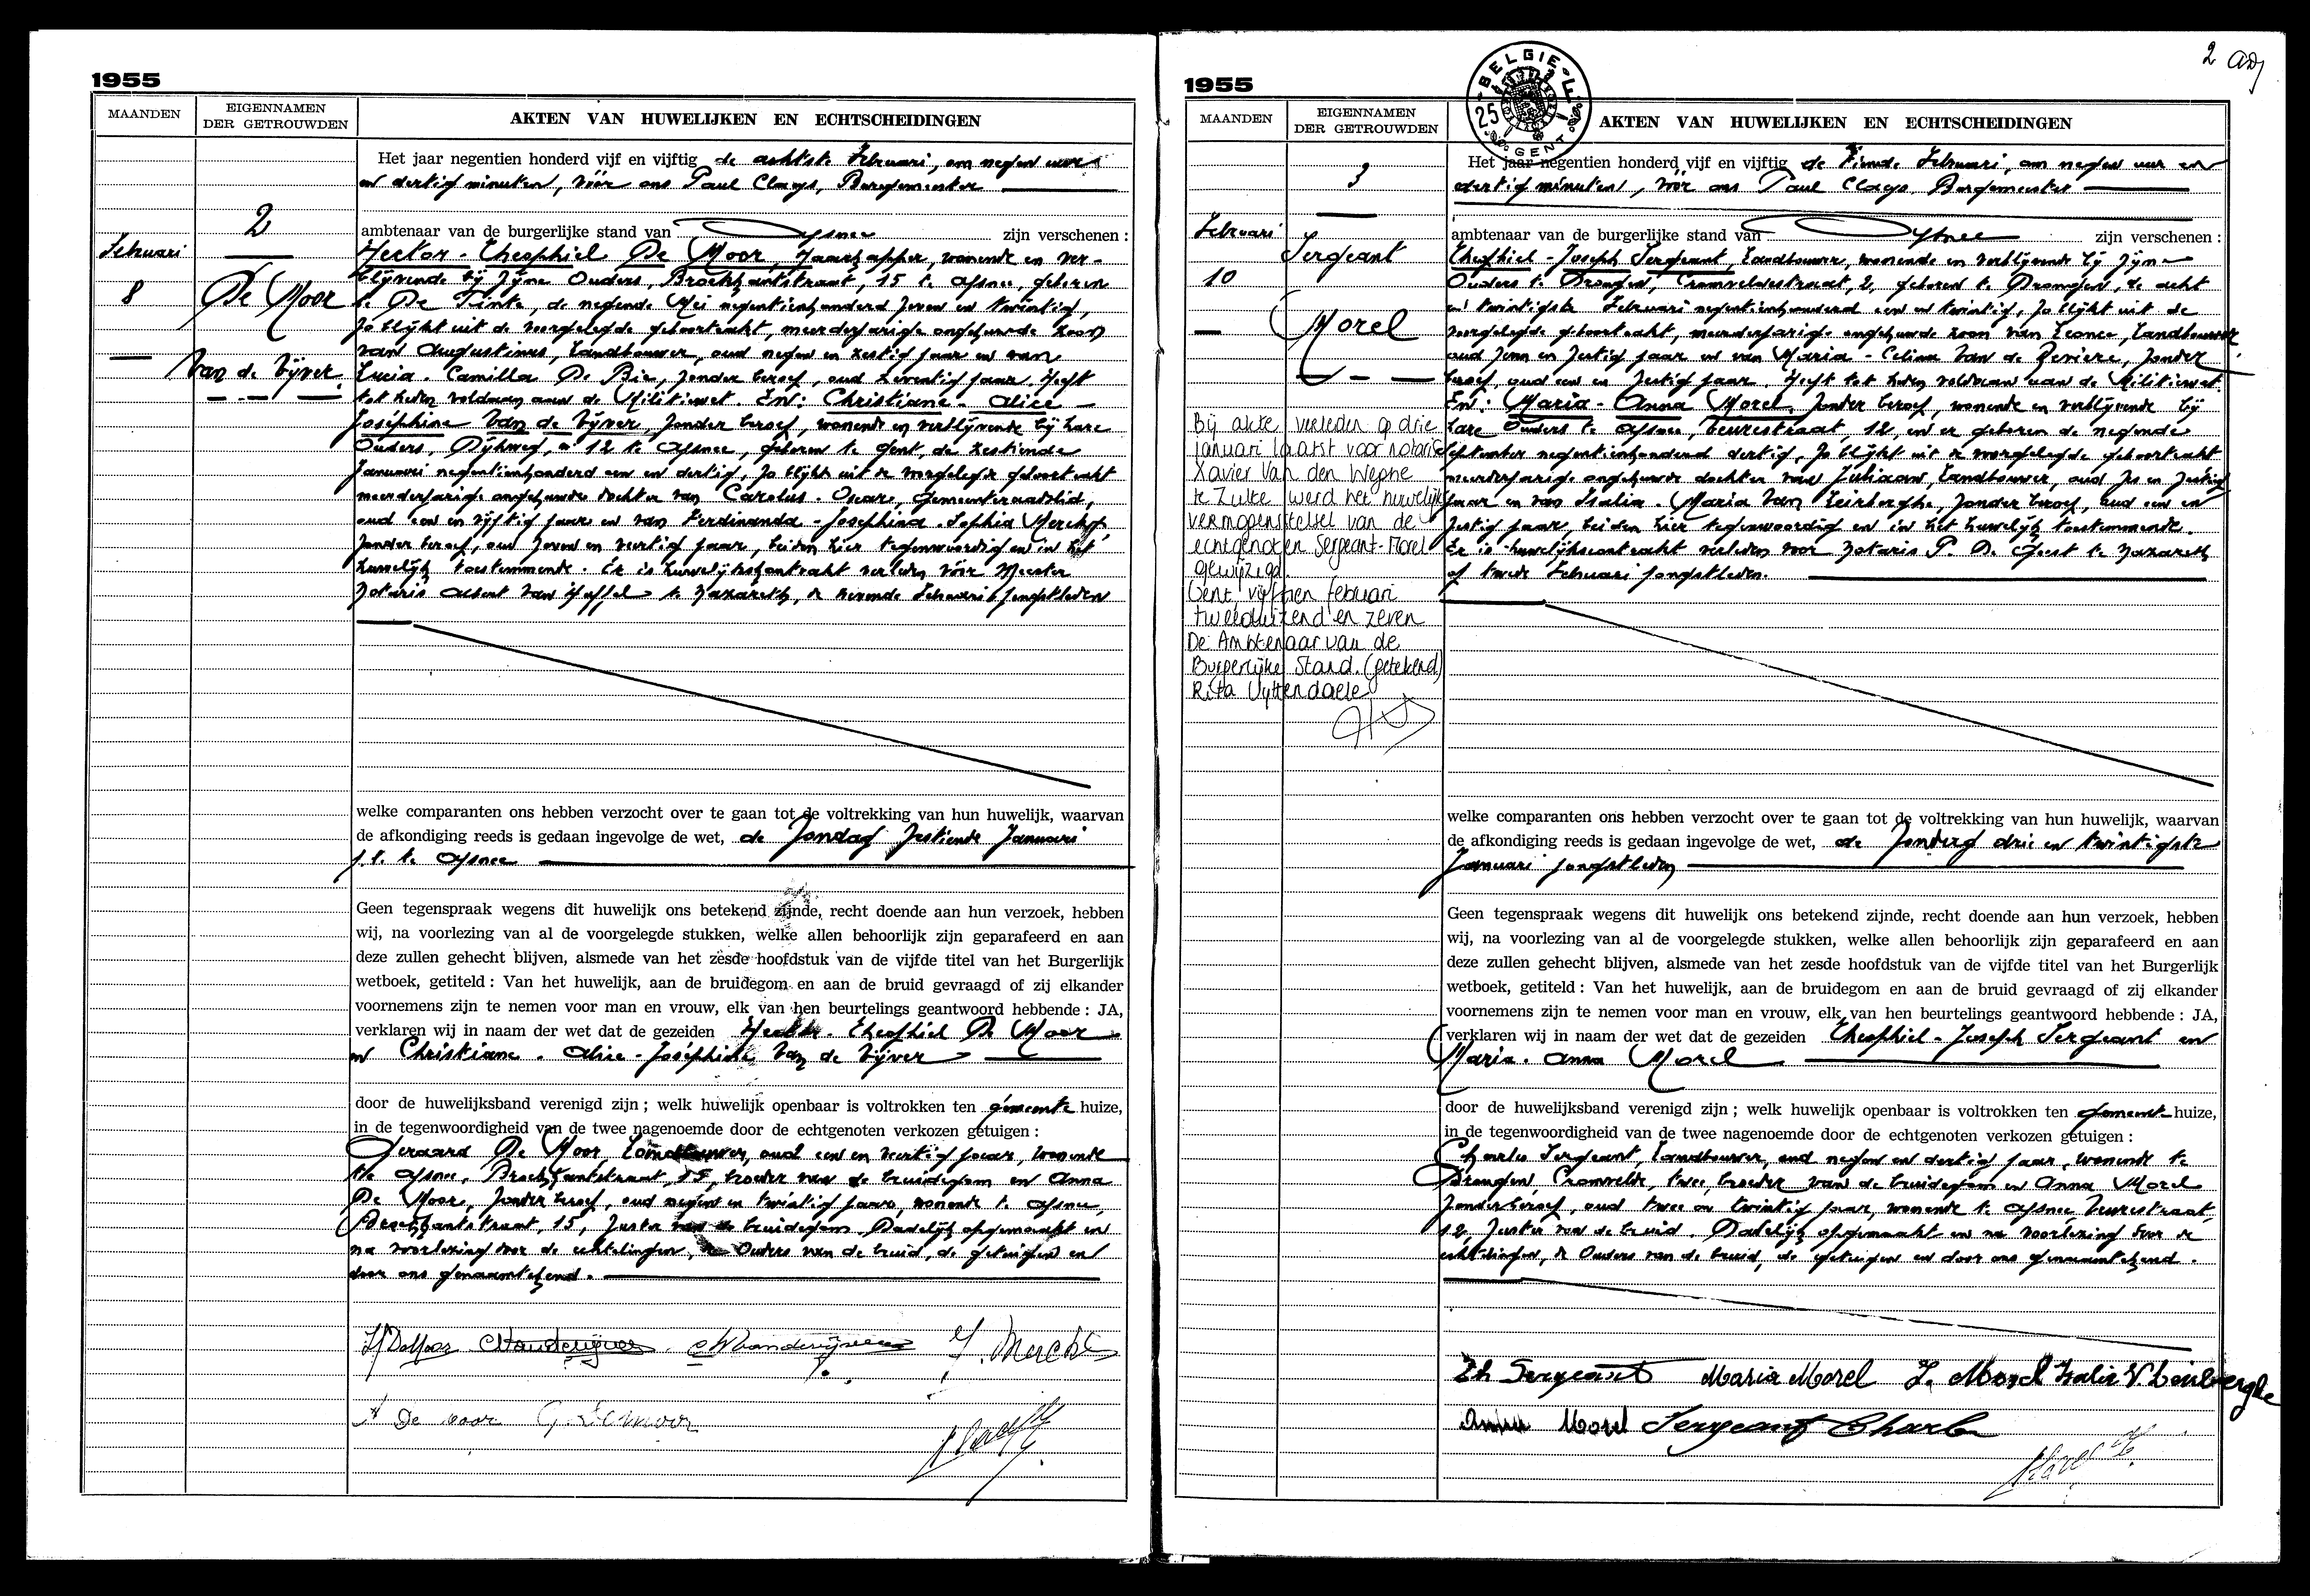 1955
MAANDEN
EIGENNAMEN DER GETROUWDEN
AKTEN VAN HUWELIJKEN EN ECHTSCHEIDINGEN
2
Februari
8
De Moor
Van de Vijver
Het jaar negentien honderd vijf en vijftig de achtste Februari, om negen uur
en dertig minuten, vóór ons Paul Claeys, Burgemeester
ambtenaar van de burgerlijke stand van Afsnee zijn verschenen :
Hector - Theophiel De Moor, wonende en ver-
blijvende bij zijne Ouders, Broekkantstraat, 15 te Afsnee, geboren
te De Pinte, de negende Mei negentienhonderd zeven en twintig,
zo blijkt uit de voorgelegde geboorteakt, meerderjarige ongehuwde zoon
van Augustinus, Landbouwer, oud negen en zestig jaar en van
Lucia - Camilla De Bie, zonder beroep, oud zeventig jaar. Heeft
tot heden voldaan aan de Militiewet. En: Christiane - Alice -
Joséphine Van de Vijver, zonder beroep, wonende en verblijvende bij hare
Ouders, Dijkweg, 12 te Afsnee, geboren te Gent, de zestiende
Januari negentienhonderd een en dertig, zo blijkt uit de voorgelegde geboorteakt
meerderjarige ongehuwde dochter van Carolus - Oscar, Gemeenteraadslid,
oud een en vijftig jaar en van Ferdinanda - Josephina - Sophia Merchy,
zonder beroep, oud zeven en veertig jaar, beiden hier tegenwoordig en in het
huwelijk toestemmende. Er is huwelijkskontrakt verleden vóór Meester
Notaris Albert Van Haffel te Nazareth, de Februari jongstleden
welke comparanten ons hebben verzocht over te gaan tot de voltrekking van hun huwelijk, waarvan
de afkondiging reeds is gedaan ingevolge de wet, de Zondag zestiende Januari
j.l. te Afsnee
Geen tegenspraak wegens dit huwelijk ons betekend zijnde, recht doende aan hun verzoek, hebben
wij, na voorlezing van al de voorgelegde stukken, welke allen behoorlijk zijn geparafeerd en aan
deze zullen gehecht blijven, alsmede van het zesde hoofdstuk van de vijfde titel van het Burgerlijk
wetboek, getiteld : Van het huwelijk, aan de bruidegom en aan de bruid gevraagd of zij elkander
voornemens zijn te nemen voor man en vrouw, elk van hen beurtelings geantwoord hebbende : JA,
verklaren wij in naam der wet dat de gezeiden Hector - Theophiel De Moor
en Christiane - Alice - Joséphine Van de Vijver
door de huwelijksband verenigd zijn ; welk huwelijk openbaar is voltrokken ten gemeente huize,
in de tegenwoordigheid van de twee nagenoemde door de echtgenoten verkozen getuigen :
Geraard De Moor, Landbouwer, oud een en veertig jaar, wonende
te Afsnee, Broekkantstraat, 15, broeder van de bruidegom en Anna
De Moor, zonder beroep, oud negen en twintig jaar, wonende te Afsnee,
Broekkantstraat, 15, zuster van de bruidegom. Dadelijk opgemaakt en
na voorlezing door de echtelingen, de Ouders van de bruid, de getuigen en
door ons genaamtekend.
H De Moor C Vandevijver C Vandevijver J. Merchie
A De Moor G. Demoor
2
1955
BELGIE
25
GENT
MAANDEN
EIGENNAMEN DER GETROUWDEN
AKTEN VAN HUWELIJKEN EN ECHTSCHEIDINGEN
3
Februari
10
Sergeant
Morel
Bij akte verleden op drie
januari laatst voor notaris
Xavier Van den Weghe
te Zulte werd het huwelijks
vermogenstelsel van de
echtgenoten Sergeant-Morel
gewijzigd.
Gent, vijftien februari
tweeduizend en zeven
De Ambtenaar van de
Burgerlijke Stand. (getekend)
Rita Uyttendaele
Het jaar negentien honderd vijf en vijftig de tiende Februari, om negen uur en
dertig minuten, vóór ons Paul Claeys, Burgemeester
ambtenaar van de burgerlijke stand van Afsnee zijn verschenen :
Theophiel - Joseph Sergeant, Landbouwer, wonende en verblijvende bij zijne
Ouders te Drongen, Cromveldestraat, 2, geboren te Drongen, de acht
en twintigste Februari negentienhonderd een en twintig, zo blijkt uit de
voorgelegde geboorteakt, meerderjarige ongehuwde zoon van Leonce, Landbouwer
oud zeven en zestig jaar en van Maria - Celina Van de Zeviere, zonder
beroep, oud een en zestig jaar. Heeft tot heden voldaan aan de Militiewet.
En: Maria - Anna Morel, zonder beroep, wonende en verblijvende bij
hare Ouders te Afsnee, Veurestraat, 12, en er geboren de negende
September negentienhonderd dertig, zo blijkt uit de voorgelegde geboorteakt
meerderjarige ongehuwde dochter van Juliaan, Landbouwer, oud zes en zestig
jaar en van Italia - Maria Van Leirberghe, zonder beroep, oud een en
zestig jaar, beiden hier tegenwoordig en in het huwelijk toestemmende.
Er is huwelijkscontrakt verleden voor Notaris P. De Gest te Nazareth
op tweede Februari jongstleden.
welke comparanten ons hebben verzocht over te gaan tot de voltrekking van hun huwelijk, waarvan
de afkondiging reeds is gedaan ingevolge de wet, de Zondag drie en twintigste
Januari jongstleden
Geen tegenspraak wegens dit huwelijk ons betekend zijnde, recht doende aan hun verzoek, hebben
wij, na voorlezing van al de voorgelegde stukken, welke allen behoorlijk zijn geparafeerd en aan
deze zullen gehecht blijven, alsmede van het zesde hoofdstuk van de vijfde titel van het Burgerlijk
wetboek, getiteld : Van het huwelijk, aan de bruidegom en aan de bruid gevraagd of zij elkander
voornemens zijn te nemen voor man en vrouw, elk van hen beurtelings geantwoord hebbende : JA,
verklaren wij in naam der wet dat de gezeiden Theophiel - Joseph Sergeant en
Maria - Anna Morel
door de huwelijksband verenigd zijn ; welk huwelijk openbaar is voltrokken ten gemeente huize,
in de tegenwoordigheid van de twee nagenoemde door de echtgenoten verkozen getuigen :
Charles Sergeant, Landbouwer, oud negen en dertig jaar, wonende te
Drongen, Cromvelde, twee, broeder van de bruidegom en Anna Morel
zonder beroep, oud twee en twintig jaar, wonende te Afsnee, Veurestraat,
12, zuster van de bruid. Dadelijk opgemaakt en na voorlezing door de
echtelingen, de Ouders van de bruid, de getuigen en door ons genaamtekend.
Th Sergeant Maria Morel J. Morel Italie V. Leirberghe
Anna Morel Sergeant Charles